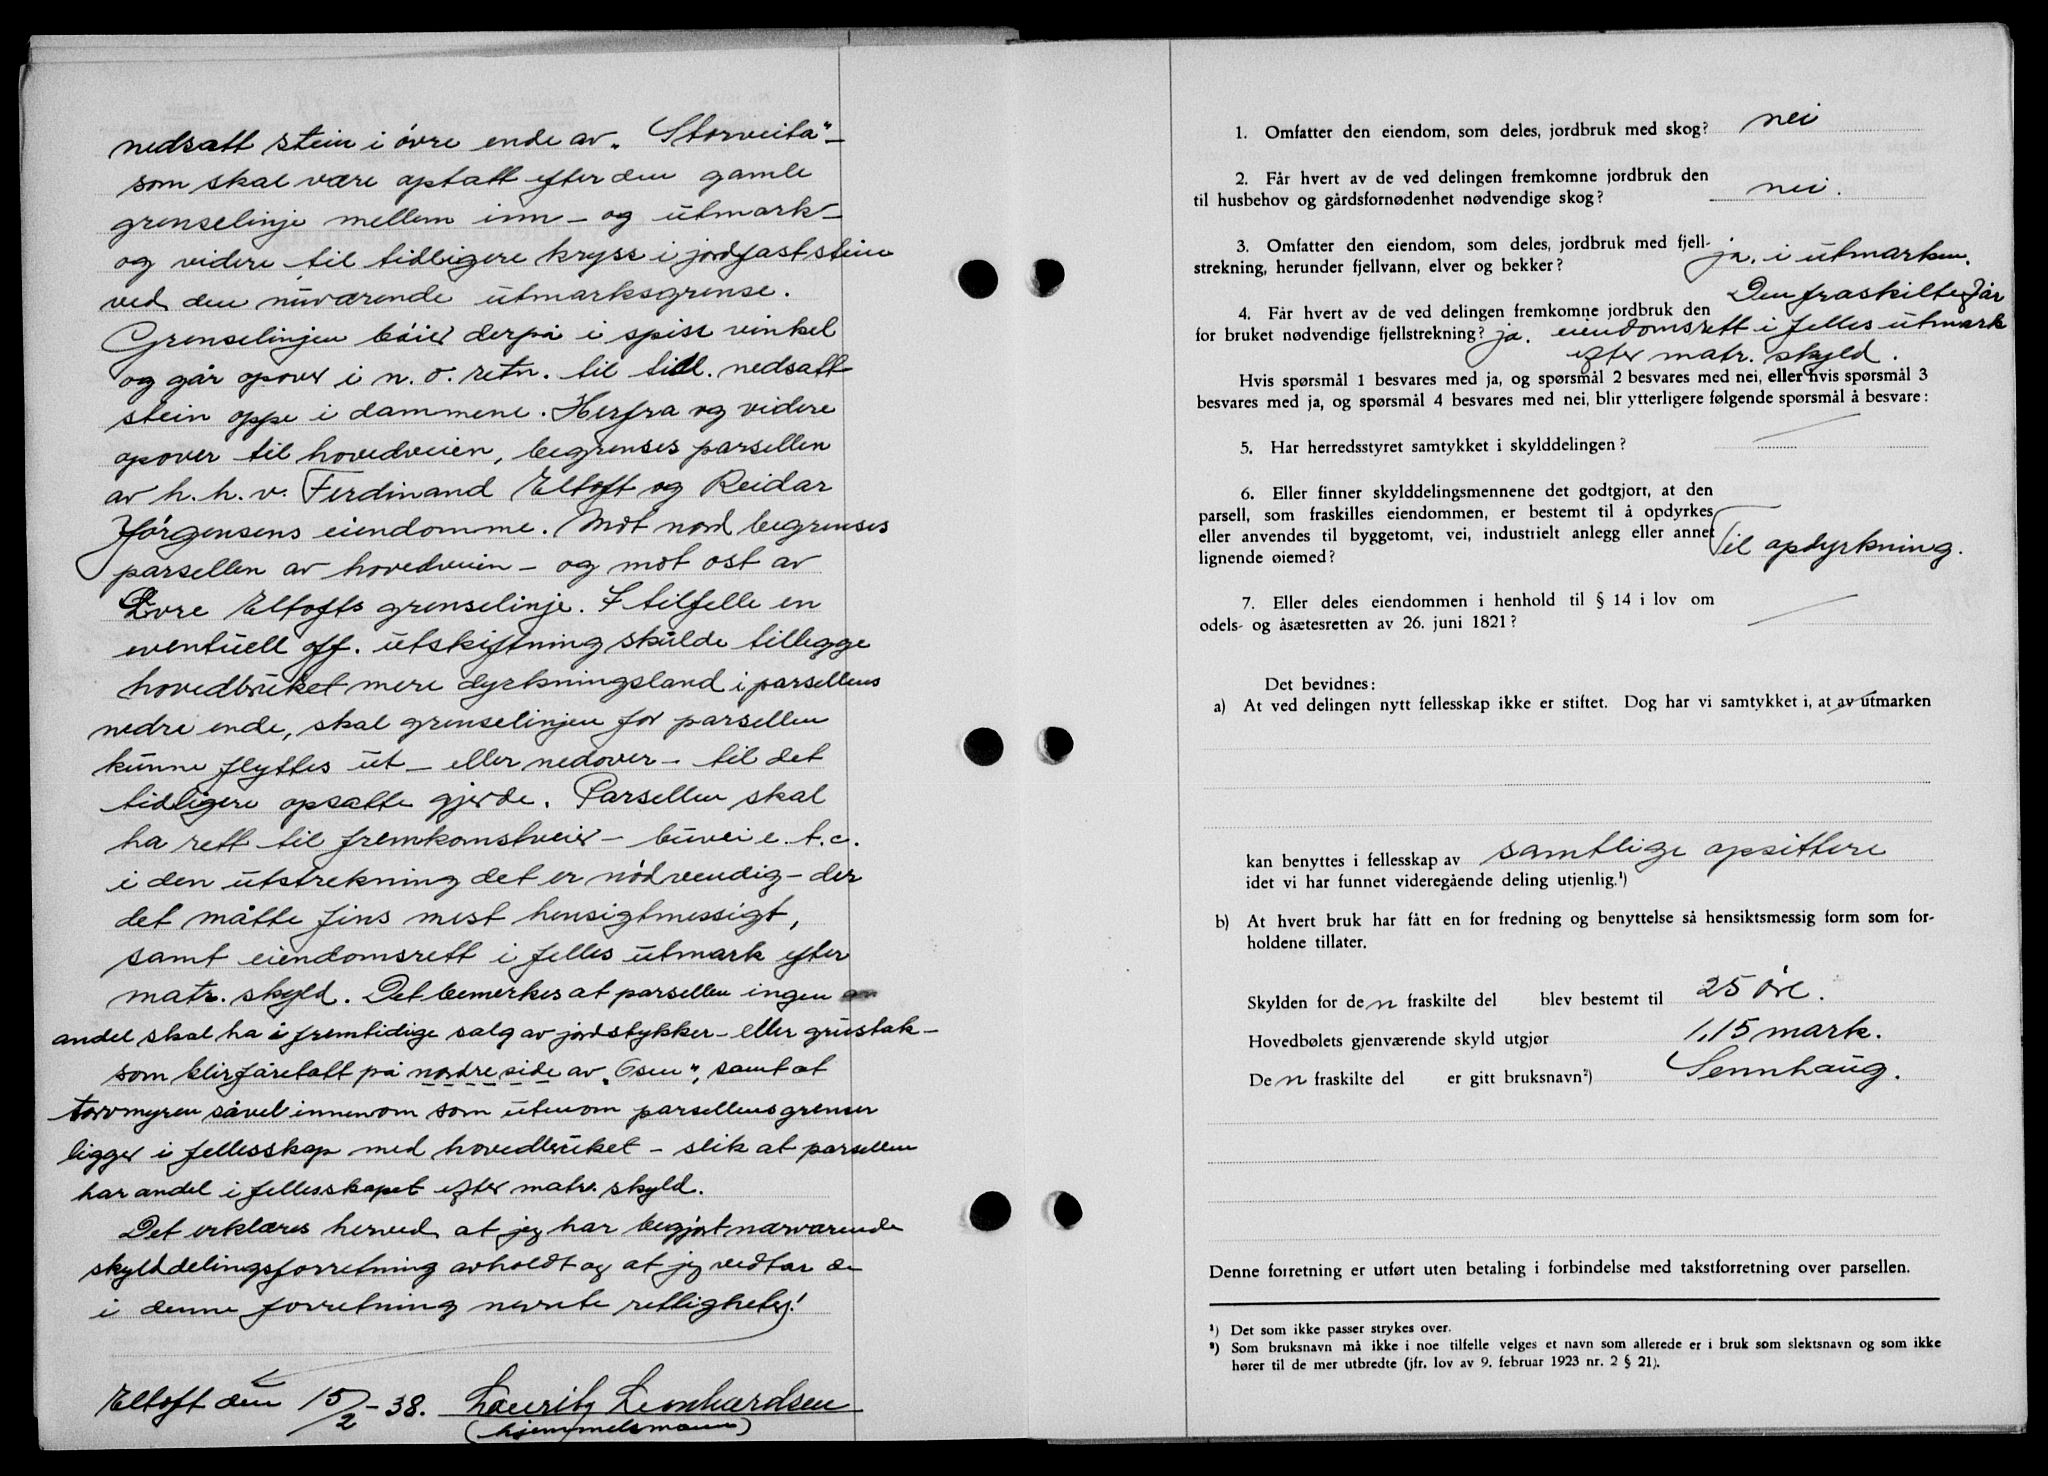 nedsatt stein i övre ende av „Storveita"-
som skal være optatt efter den gamle
grenselinje mellem inn- og utmark-
og videre til tidligere kryss i jordfast stein
ved den nuværende utmarksgrense.
Grenselinjen böier derpå i spiss vinkel
og går opover i n. o. retn. til tidl. nedsatt
stein oppe i dammene. Herfra og videre
opover til hovedveien, begrenses parsellen
av h. h. v. Ferdinand Eltoft og Reidar
Jörgensens eiendomme. Mot nord begrenses
parsellen av hovedveien - og mot ost av
Evre Eltofts grenselinje. I tilfelle en
eventuell off. utskiftning skulde tillegge
hovedbruket mere dyrkningsland i parsellens
nedre ende, skal grenselinjen for parsellen
kunne flyttes ut - eller nedover - til det
tidligere opsatte gjerde. Parsellen skal
ha rett til fremkomstveier - buvei e. t. c.
i den utstrekning det er nödvendig - der
det måtte fins mest hensigtmessigt,
samt eiendomsrett i felles utmark efter
matr. skyld. Det bemerkes at parsellen ingen
andel skal ha i fremtidige salg av jordstykker - eller grustak -
som blir företatt på nordre side av „Osen", samt at
torvmyren såvel innenom som utenom parsellens grenser
ligger i fellesskap med hovedbruket - slik at parsellen
har andel i fellesskapet efter matr. skyld.
Det erklæres herved at jeg har begjört nærværende
skylddelingsforretning avholdt og at jeg vedtar de
i denne forretning nevnte rettigheter!
Eltoft den 15/2 - 38. Lauritz Leonhardsen
(hjemmelsmann)
1. Omfatter den eiendom, som deles, jordbruk med skog? nei
2. Får hvert av de ved delingen fremkomne jordbruk den
til husbehov og gårdsfornødenhet nødvendige skog? nei.
3. Omfatter den eiendom, som deles, jordbruk med fjell-
strekning, herunder fjellvann, elver og bekker? ja. i utmarken.
Den fraskilte får
4. Får hvert av de ved delingen fremkomne jordbruk den
for bruket nødvendige fjellstrekning? ja. eiendomsrett i felles utmark
efter matr. skyld.
Hvis spørsmål 1 besvares med ja, og spørsmål 2 besvares med nei, eller hvis spørsmål 3
besvares med ja, og spørsmål 4 besvares med nei, blir ytterligere følgende spørsmål å besvare:
5. Har herredsstyret samtykket i skylddelingen?
6. Eller finner skylddelingsmennene det godtgjort, at den
parsell, som fraskilles eiendommen, er bestemt til å opdyrkes
eller anvendes til byggetomt, vei, industrielt anlegg eller annet
lignende øiemed? Til opdyrkning.
7. Eller deles eiendommen i henhold til § 14 i lov om
odels- og åsætesretten av 26. juni 1821?
Det bevidnes:
a) At ved delingen nytt fellesskap ikke er stiftet. Dog har vi samtykket i, at av utmarken
kan benyttes i fellesskap av samtlige opsittere
idet vi har funnet videregående deling utjenlig.¹)
b) At hvert bruk har fått en for fredning og benyttelse så hensiktsmessig form som for-
holdene tillater.
Skylden for den fraskilte del blev bestemt til 25 öre.
Hovedbølets gjenværende skyld utgjør 1,15 mark.
Den fraskilte del er gitt bruksnavn²) Sennhaug.
Denne forretning er utført uten betaling i forbindelse med takstforretning over parsellen.
¹) Det som ikke passer strykes over.
²) Som bruksnavn må ikke i noe tilfelle velges et navn som allerede er i bruk som slektsnavn og som ikke
hører til de mer utbredte (jfr. lov av 9. februar 1923 nr. 2 § 21).